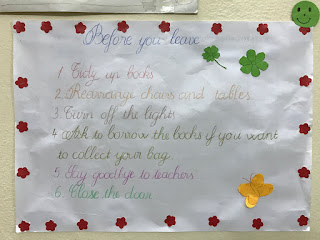 Before you leave
1 Tidy up books
2 Rearrange chairs and tables.
3 Turn off the lights
4 Ask to borrow the books if you want
to collect your bag.
5 Say goodbye to teachers
6. Close the door